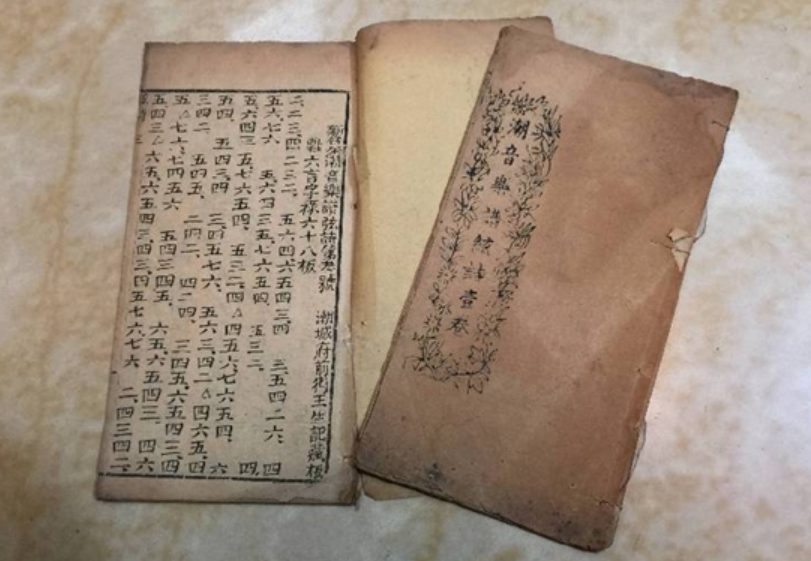 潮音樂譜弦詩 號 潮城府前街王生記藏板
六言字樣六十八板
二二三、四二三二、五六四六五四三、四、三五四二六、四
五六七六 五六四三五七六五四、五三二、四
五、六四三五七六五四、五三二、四△四五六、七六五四、六
五四、五四三、四 三、四五七六、五六三、四二△四六五、四
三四二 五四五、二四二、四二四、三四五、六五四三、四
五、△七六、七四五六 五四三四五、六五六五四三、四六
五四三△六五六五四三、四三、四五七六、七六 二、四三四二
潮音樂譜絃詩壹卷